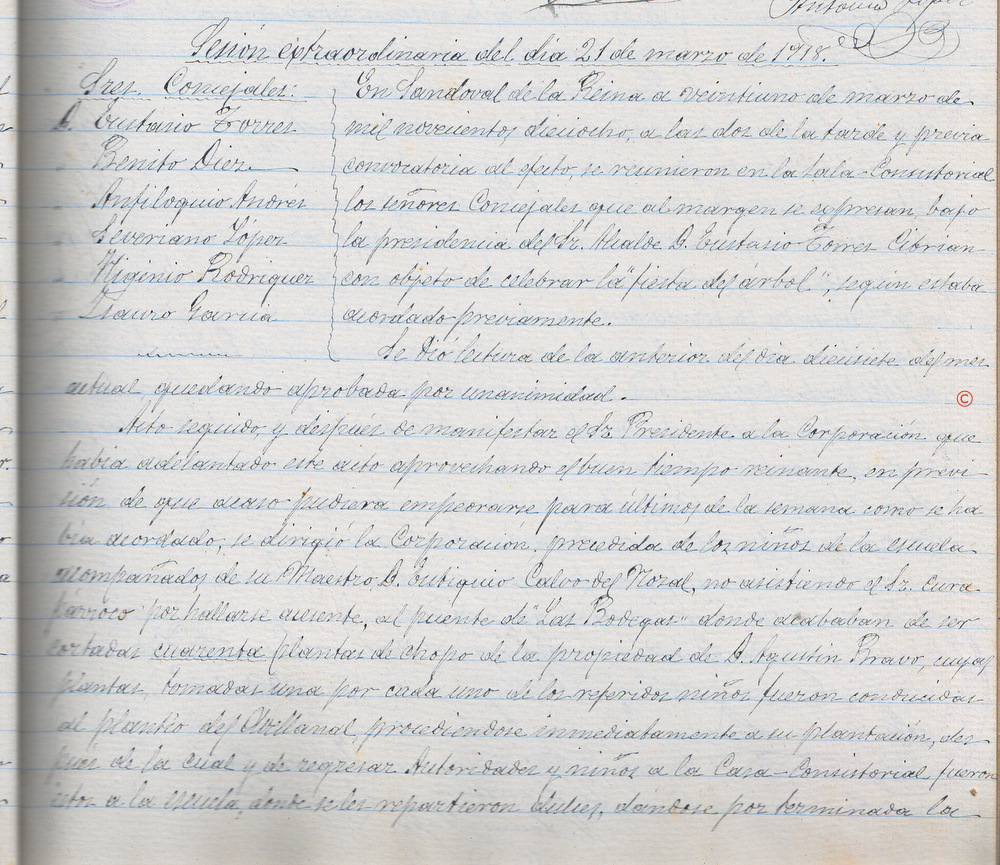 Antonio López
Sesión extraordinaria del dia 21 de marzo de 1918.
Sres. Concejales:
D. Eustasio Torres
" Benito Diez
" Anfiloquio Andrés
" Severiano López
" Higinio Rodriguez
" Stauro Garcia
En Sandoval de la Reina a veintiuno de marzo de
mil novecientos dieciocho, a las dos de la tarde y previa
convocatoria al efecto, se reunieron en la sala-Consistorial
los señores Concejales que al margen se expresan, bajo
la presidencia del Sr. Alcalde D. Eustasio Torres Cibrian
con objeto de celebrar la "fiesta del árbol", según estaba
acordado previamente.
Se dió lectura de la anterior del dia diecisiete del mes
actual, quedando aprobada por unanimidad.
Acto seguido, y después de manifestar el Sr. Presidente a la Corporación que
habia adelantado este acto aprovechando el buen tiempo reinante, en previ
sión de que acaso pudiera empeorarse para últimos de la semana como se ha
bía acordado, se dirigió la Corporación, precedida de los niños de la escuela
acompañados de su Maestro D. Eutiquio Calvo del Nozal, no asistiendo el Sr. Cura-
párroco por hallarse ausente, al puente de "Las Bodegas" donde acababan de ser
cortadas cuarenta plantas de chopo de la propiedad de D. Agustin Bravo, cuyas
plantas, tomadas una por cada uno de los referidos niños fueron conducidas
al plantío del Avellanal procediendose inmediatamente a su plantación, des
pués de la cual y de regresar Autoridades y niños a la Casa-Consistorial fueron
éstos a la escuela, donde se les repartieron dulces, dándose por terminada la
©